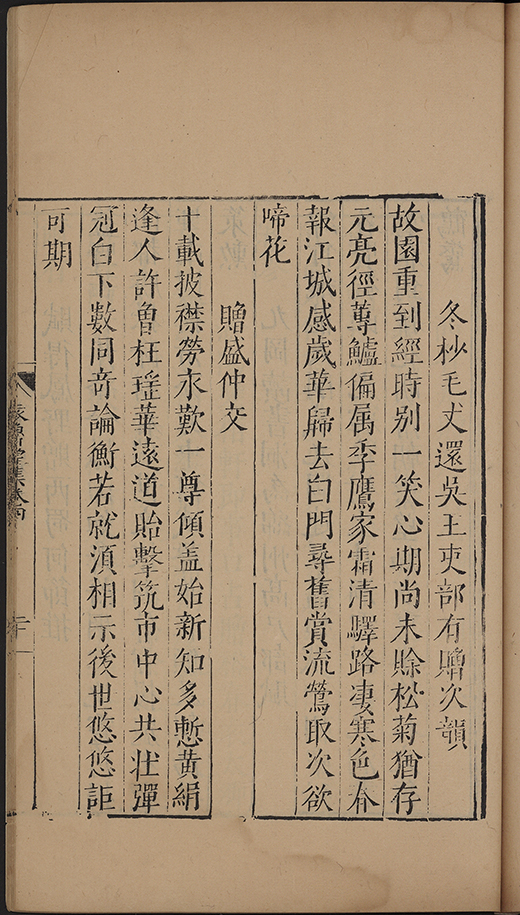 冬杪毛丈還吳王吏部有贈次韻
故園重到經時別一笑心期尚未賒松菊猶存
元亮徑蓴鱸偏属季鷹家霜清驛路凄寒色春
報江城感歲華歸去白門尋舊賞流鶯取次欲
啼花
贈盛仲交
十載披襟勞永歎一尊傾盖始新知多慙黄絹
逢人許曾枉瑤華遠道貽擊筑市中心共壮彈
冠白下數同竒論衡若就湏相示後世悠悠詎
可期
袁魯望集卷